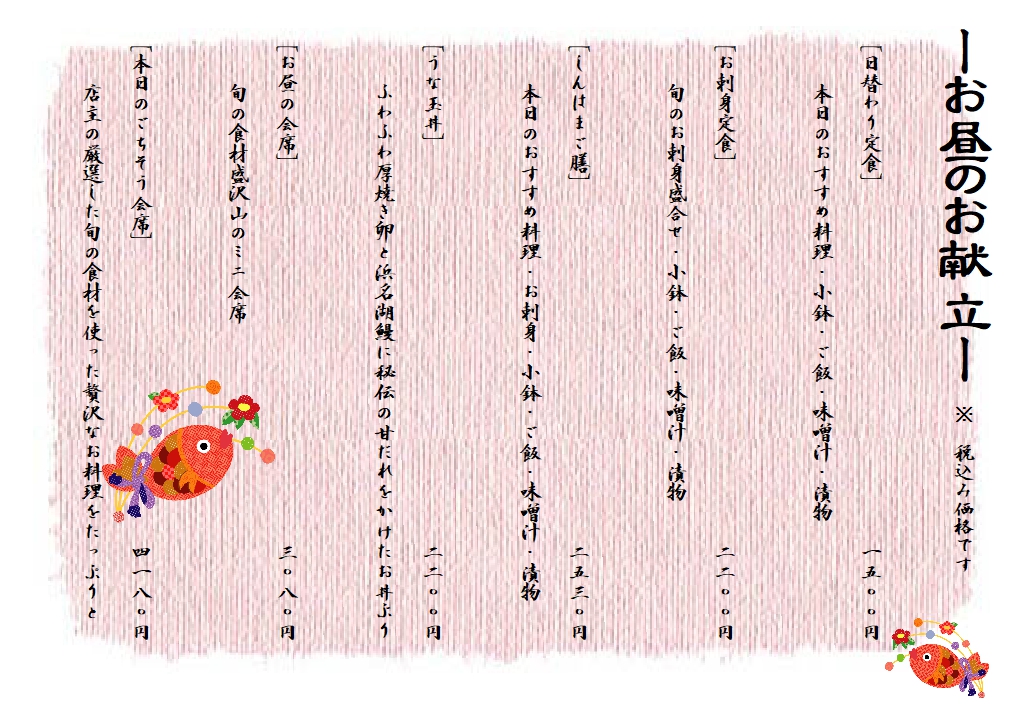 ーお昼のお献立ー ※ 税込み価格です
[日替わり定食] 一五〇〇円
本日のおすすめ料理・小鉢・ご飯・味噌汁・漬物
[お刺身定食] 二二〇〇円
旬のお刺身盛合せ・小鉢・ご飯・味噌汁・漬物
[しんはまご膳] 二五三〇円
本日のおすすめ料理・お刺身・小鉢・ご飯・味噌汁・漬物
[うな玉丼] 二二〇〇円
ふわふわ厚焼き卵と浜名湖鰻に秘伝の甘だれをかけたお丼ぶり
[お昼の会席] 三〇八〇円
旬の食材盛沢山のミニ会席
[本日のごちそう会席] 四一八〇円
店主の厳選した旬の食材を使った贅沢なお料理をたっぷりと